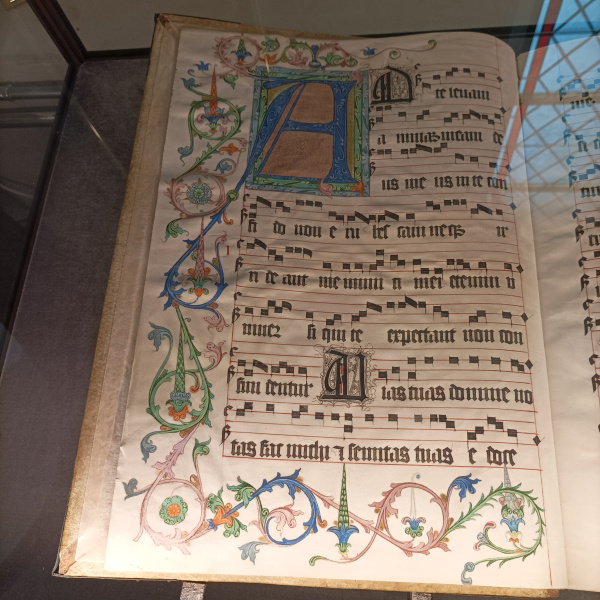 AD te levavi
a nimas meam de
us me us in te con
fi do non e ru bes cam neqz ir
ri de ant me inimi ci mei etenim v
niuersi qui te expectant non con
fun dentur Uias tuas domine no
tas fac michi ⁊ semitas tuas e doce